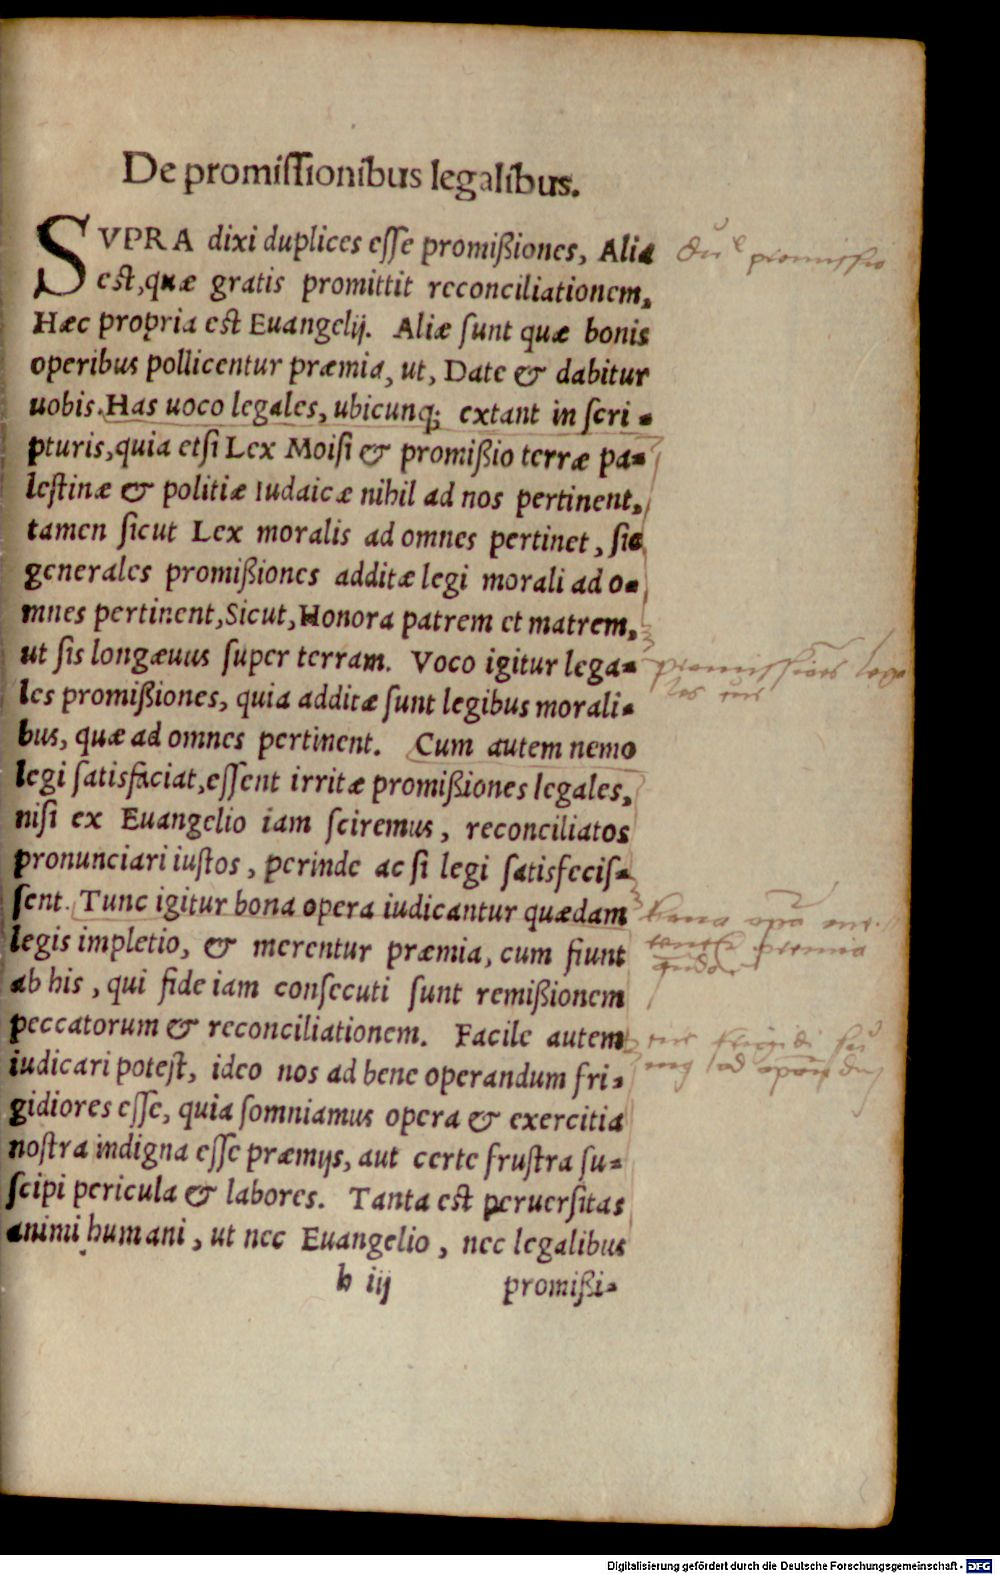 De promissionibus legalibus.
SVPRA dixi duplices esse promißiones, Alia
est, quæ gratis promittit reconciliationem,
Hæc propria est Euangelij. Aliæ sunt quæ bonis
operibus pollicentur præmia, ut, Date & dabitur
uobis. Has uoco legales, ubicunq; extant in scri-
pturis, quia etsi Lex Moisi & promißio terræ pa-
lestinæ & politiæ Iudaicæ nihil ad nos pertinent,
tamen sicut Lex moralis ad omnes pertinet, sic
generales promißiones additæ legi morali ad o-
mnes pertinent, Sicut, Honora patrem et matrem,
ut sis longæuus super terram. Voco igitur lega-
les promißiones, quia additæ sunt legibus morali-
bus, quæ ad omnes pertinent. Cum autem nemo
legi satisfaciat, essent irritæ promißiones legales,
nisi ex Euangelio iam sciremus, reconciliatos
pronunciari iustos, perinde ac si legi satisfecis-
sent. Tunc igitur bona opera iudicantur quædam
legis impletio, & merentur præmia, cum fiunt
ab his, qui fide iam consecuti sunt remißionem
peccatorum & reconciliationem. Facile autem
iudicari potest, ideo nos ad bene operandum fri-
gidiores esse, quia somniamus opera & exercitia
nostra indigna esse præmijs, aut certe frustra su-
scipi pericula & labores. Tanta est peruersitas
animi humani, ut nec Euangelio, nec legalibus
b iij promißi-
promissio
bona
Digitalisierung gefördert durch die Deutsche Forschungsgemeinschaft - DFG